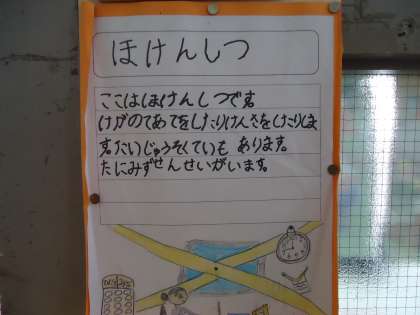 ほけんしつ
ここはほけんしつです。
けがのてあてをしたりけんさをしたりしま
す。たいじゅうそくていも あります。
たにみずせんせいがいます。